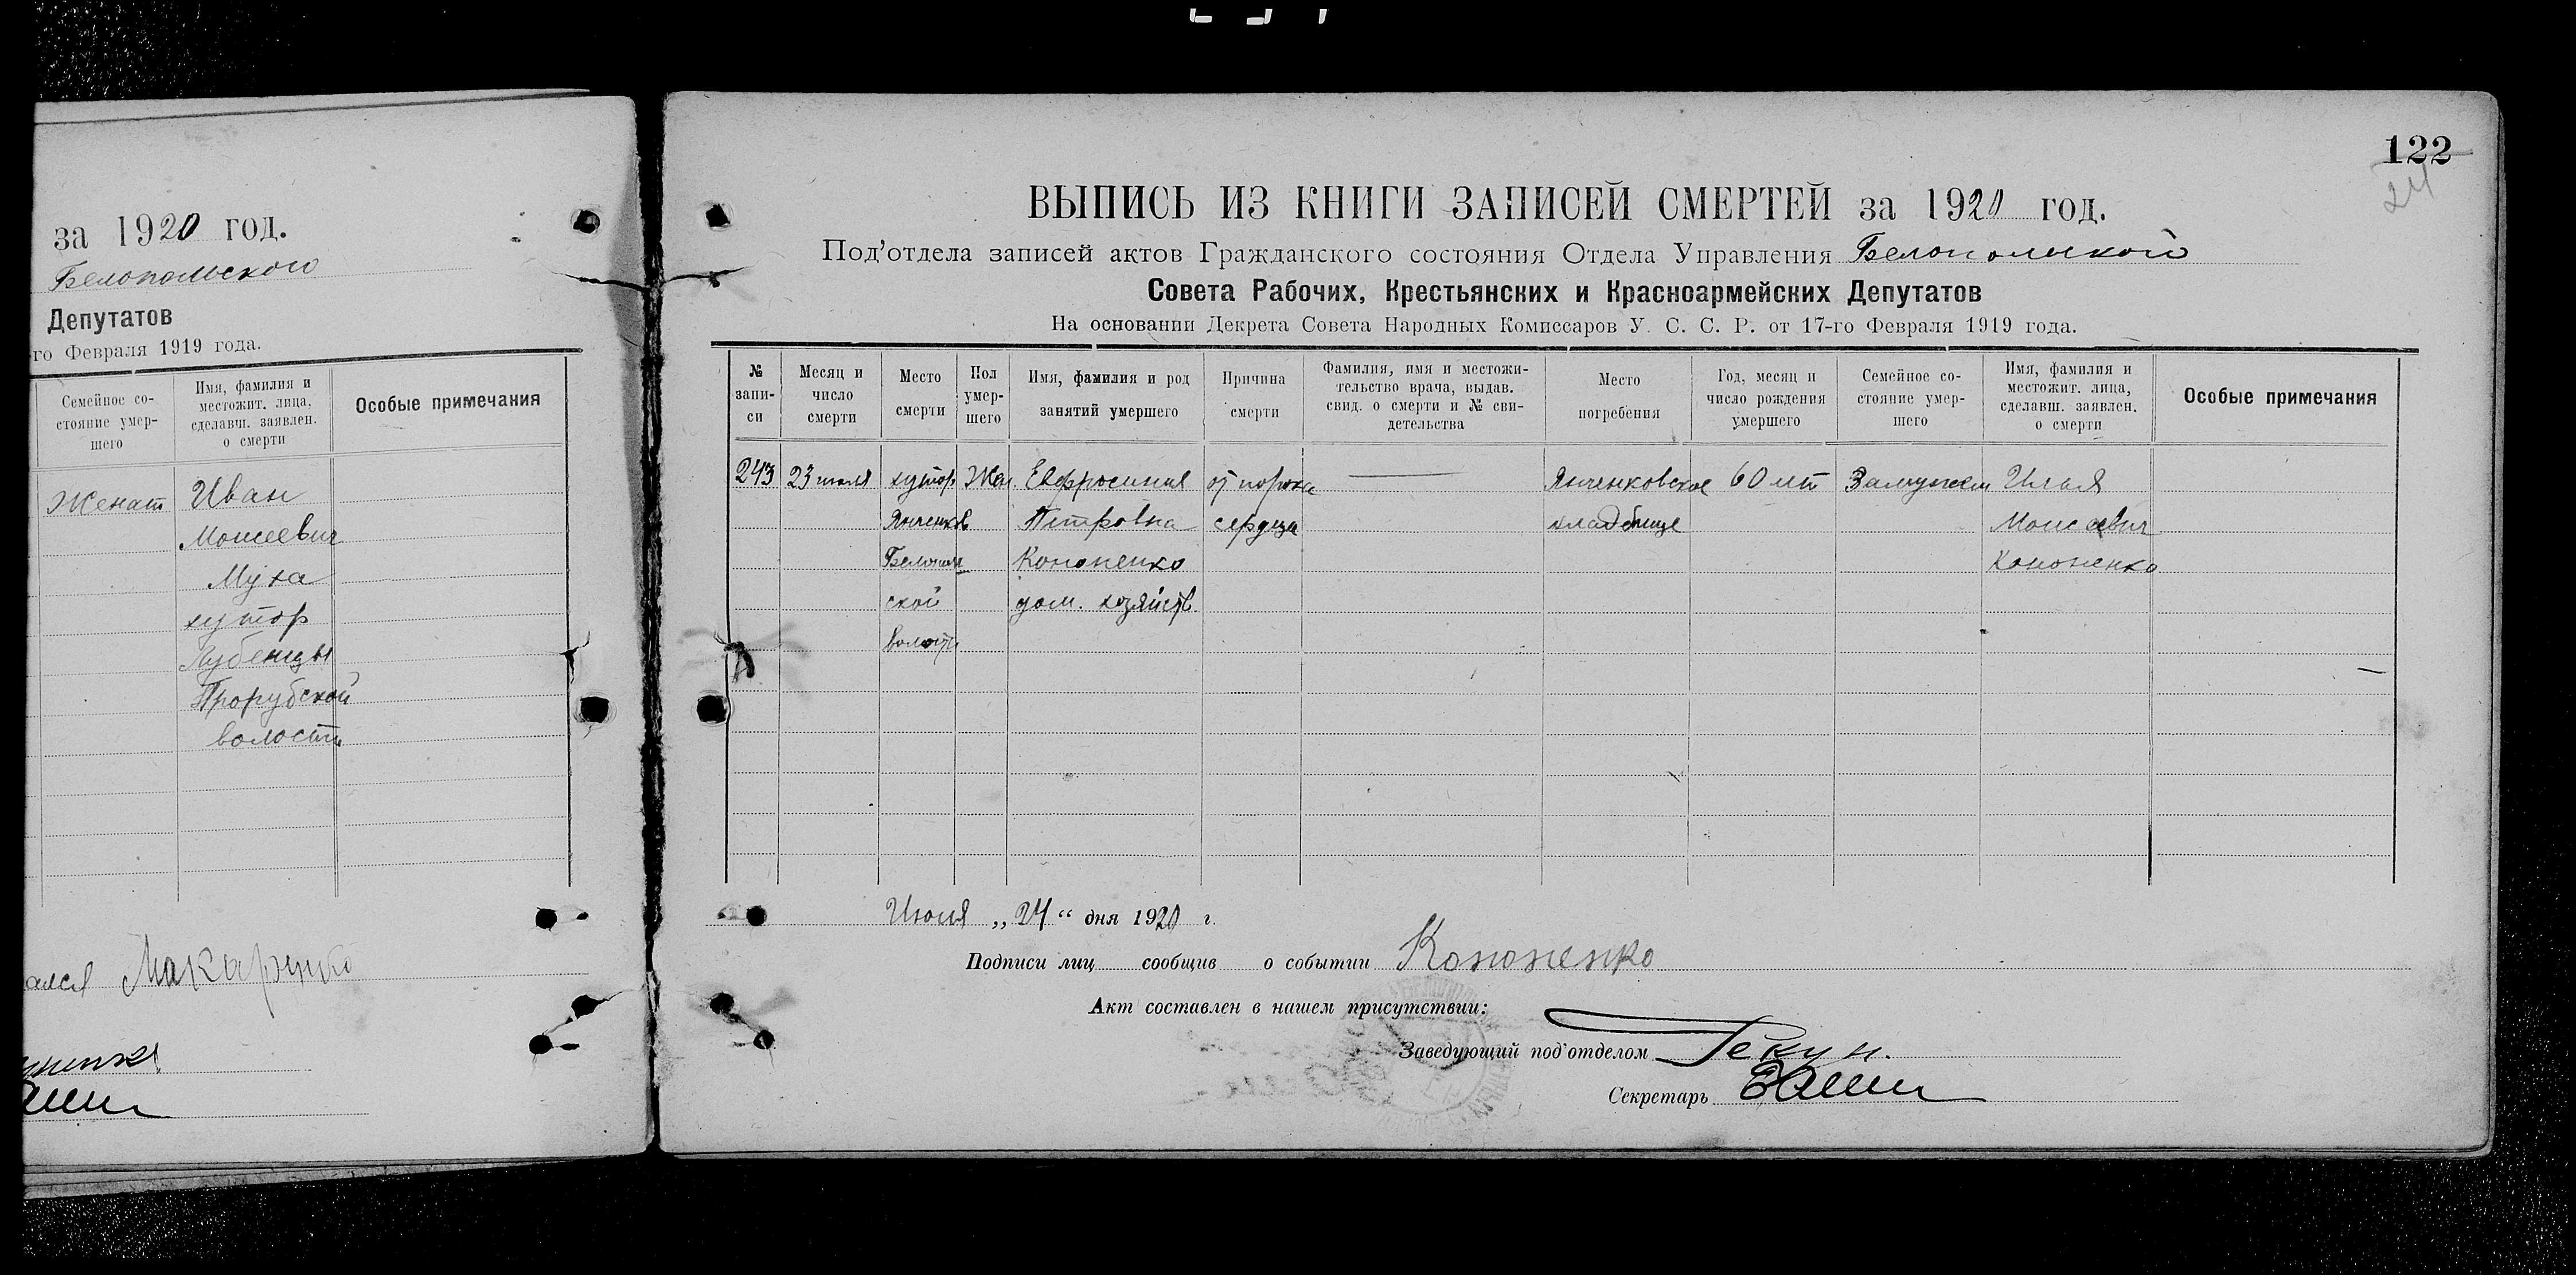 за 1920 год.
Белопольского
Депутатов
го Февраля 1919 года.
Семейное со-
стояние умер-
шего
Имя, фамилия и
местожит. лица,
сделавш. заявлен.
о смерти
Особые примечания
Женат
Иван
Моисеевич
Муха
хутор
Прорубской
волости
ался Макаренко
122
24
ВЫПИСЬ ИЗ КНИГИ ЗАПИСЕЙ СМЕРТЕЙ за 1920 год.
Под'отдела записей актов Гражданского состояния Отдела Управления Белопольской
Совета Рабочих, Крестьянских и Красноармейских Депутатов
На основании Декрета Совета Народных Комиссаров У. С. С. Р. от 17-го Февраля 1919 года.
№
запи-
си
Месяц и
число
смерти
Место
смерти
Пол
умер-
шего
Имя, фамилия и род
занятий умершего
Причина
смерти
Фамилия, имя и местожи-
тельство врача, выдав.
свид. о смерти и № сви-
детельства
Место
погребения
Год, месяц и
число рождения
умершего
Семейное со-
стояние умер-
шего
Имя, фамилия и
местожит. лица,
сделавш. заявлен.
о смерти
Особые примечания
243 23 июля хутор Жен. Евфросиния от порока Янченковское 60 лет Замужем Илья
Янченков Петровна сердца кладбище Моисеевич
Белополь Кононенко Кононенко
ской дом. хозяйств.
волости
Июля „24“ дня 1920 г.
Подписи лиц сообщив о событии Кононенко
Акт составлен в нашем присутствии:
Заведующий под'отделом
Секретарь